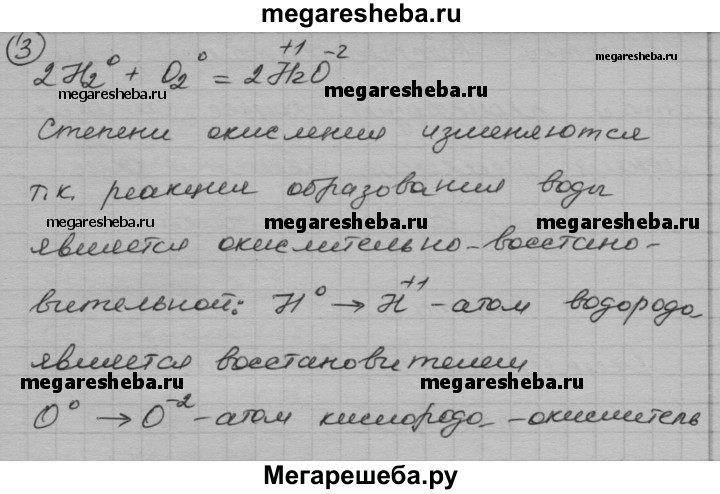 megaresheba.ru
③
2H₂⁰ + O₂⁰ = 2H₂⁺¹O⁻²
megaresheba.ru megaresheba.ru
Степени окисления изменяются
т.к. реакции образования воды
megaresheba.ru megaresheba.ru megaresheba.ru
является окислительно-восстано-
вительной: H⁰ → H⁺¹ - атом водорода
является восстановителем
megaresheba.ru megaresheba.ru megaresheba.ru
O⁰ → O⁻² - атом кислорода - окислитель
Мегарешеба.ру